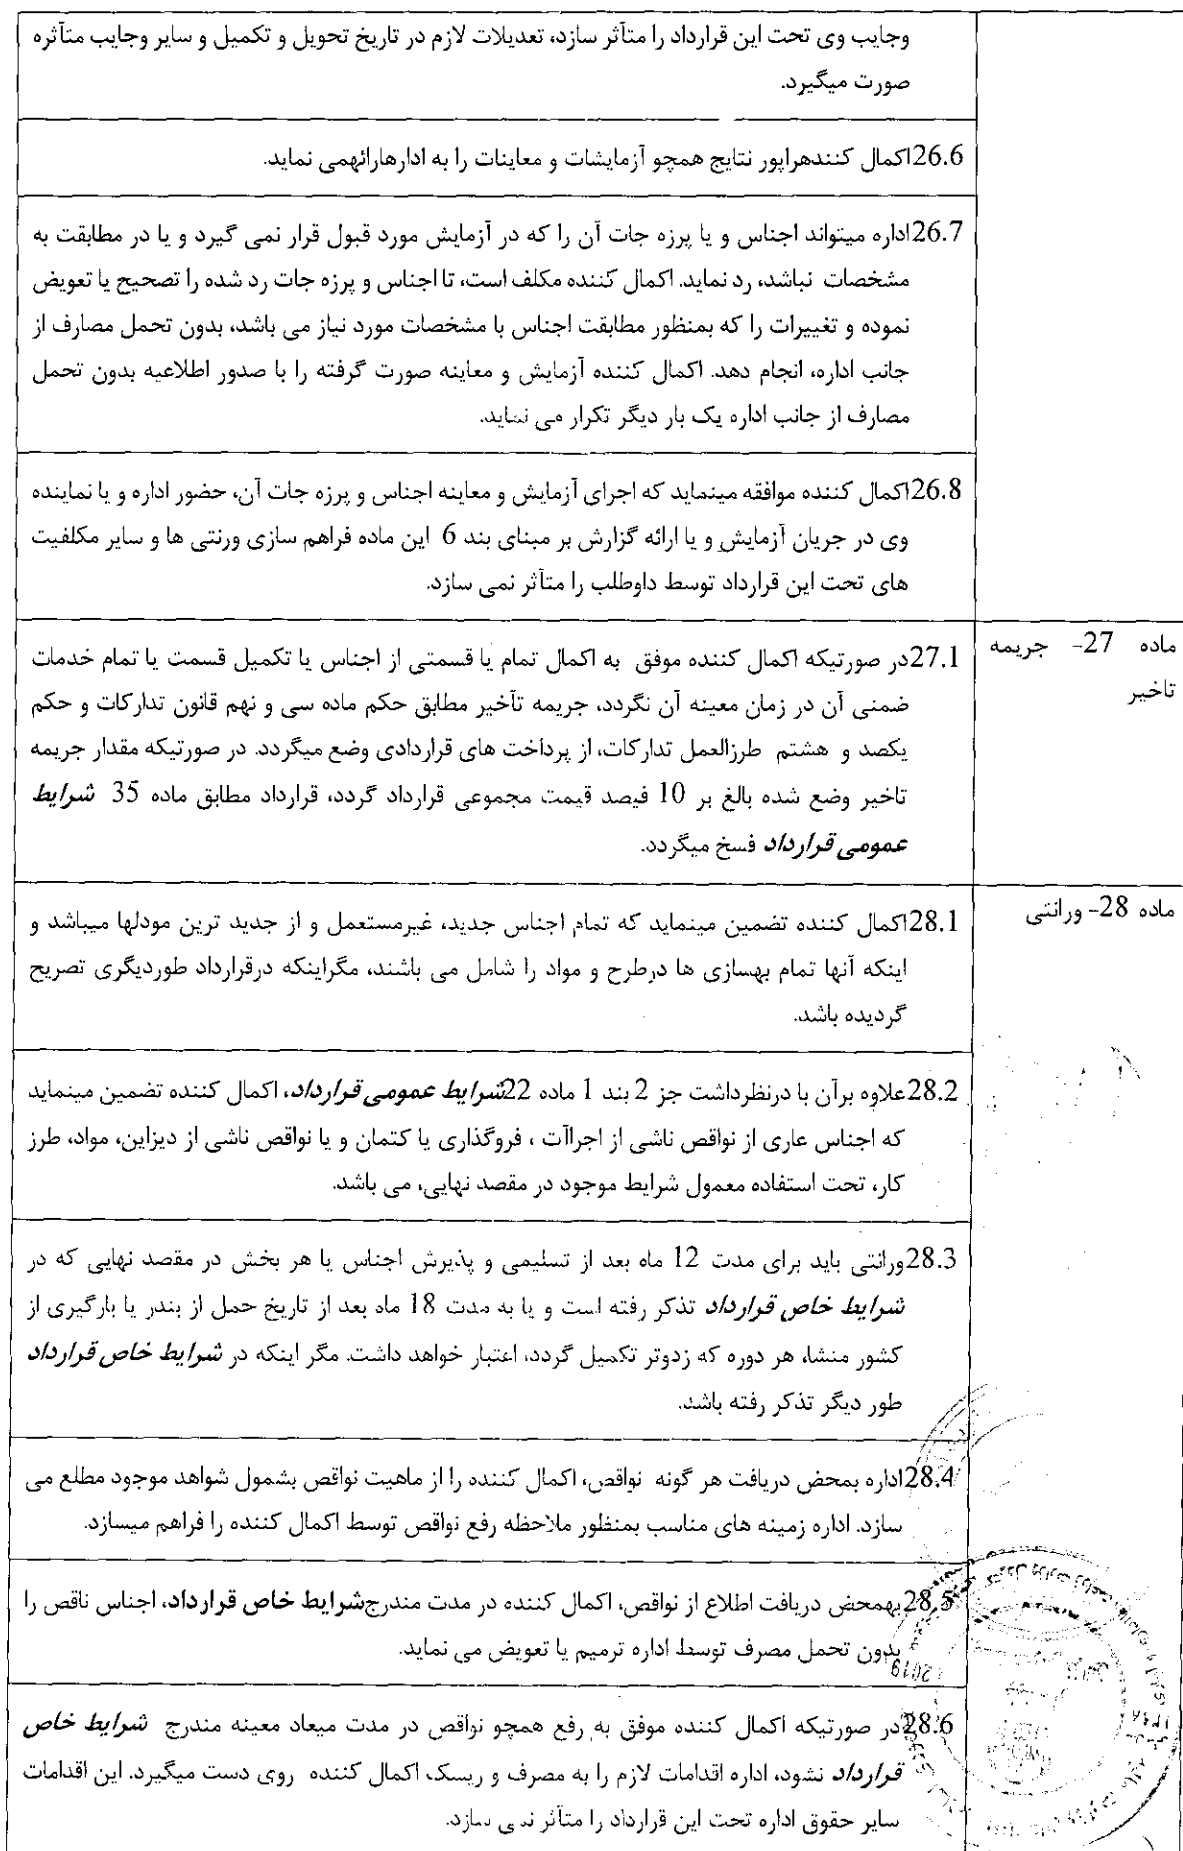 وجایب وی تحت این قرارداد را متأثر سازد، تعدیلات لازم در تاریخ تحویل و تکمیل و سایر وجایب متأثره
صورت میگیرد.
26.6اکمال کنندهراپور نتایج همچو آزمایشات و معاینات را به ادارهارائهمی نماید.
26.7اداره میتواند اجناس و یا پرزه جات آن را که در آزمایش مورد قبول قرار نمی گیرد و یا در مطابقت به
مشخصات نباشد، رد نماید. اکمال کننده مکلف است، تا اجناس و پرزه جات رد شده را تصحیح یا تعویض
نموده و تغییرات را که بمنظور مطابقت اجناس با مشخصات مورد نیاز می باشد، بدون تحمل مصارف از
جانب اداره، انجام دهد. اکمال کننده آزمایش و معاینه صورت گرفته را با صدور اطلاعیه بدون تحمل
مصارف از جانب اداره یک بار دیگر تکرار می نماید.
26.8اکمال کننده موافقه مینماید که اجرای آزمایش و معاینه اجناس و پرزه جات آن، حضور اداره و یا نماینده
وی در جریان آزمایش و یا ارائه گزارش بر مبنای بند 6 این ماده فراهم سازی ورنتی ها و سایر مکلفیت
های تحت این قرارداد توسط داوطلب را متأثر نمی سازد.
ماده 27- جریمه
تاخیر
27.1در صورتیکه اکمال کننده موفق به اکمال تمام یا قسمتی از اجناس یا تکمیل قسمت یا تمام خدمات
ضمنی آن در زمان معینه آن نگردد، جریمه تأخیر مطابق حکم ماده سی و نهم قانون تدارکات و حکم
یکصد و هشتم طرزالعمل تدارکات، از پرداخت های قراردادی وضع میگردد. در صورتیکه مقدار جریمه
تاخیر وضع شده بالغ بر 10 فیصد قیمت مجموعی قرارداد گردد، قرارداد مطابق ماده 35 شرایط
عمومی قرارداد فسخ میگردد.
ماده 28- ورانتی
28.1اکمال کننده تضمین مینماید که تمام اجناس جدید، غیرمستعمل و از جدید ترین مودلها میباشد و
اینکه آنها تمام بهسازی ها درطرح و مواد را شامل می باشند، مگراینکه درقرارداد طوردیگری تصریح
گردیده باشد.
28.2علاوه برآن با درنظرداشت جز 2 بند 1 ماده 22شرایط عمومی قرارداد، اکمال کننده تضمین مینماید
که اجناس عاری از نواقص ناشی از اجراآت ، فروگذاری یا کتمان و یا نواقص ناشی از دیزاین، مواد، طرز
کار، تحت استفاده معمول شرایط موجود در مقصد نهایی، می باشد.
28.3ورانتی باید برای مدت 12 ماه بعد از تسلیمی و پذیرش اجناس یا هر بخش در مقصد نهایی که در
شرایط خاص قرارداد تذکر رفته است و یا به مدت 18 ماه بعد از تاریخ حمل از بندر یا بارگیری از
کشور منشا، هر دوره که زدوتر تکمیل گردد، اعتبار خواهد داشت. مگر اینکه در شرایط خاص قرارداد
طور دیگر تذکر رفته باشد.
28.4اداره بمحض دریافت هر گونه نواقص، اکمال کننده را از ماهیت نواقص بشمول شواهد موجود مطلع می
سازد. اداره زمینه های مناسب بمنظور ملاحظه رفع نواقص توسط اکمال کننده را فراهم میسازد.
28.5بهمحض دریافت اطلاع از نواقص، اکمال کننده در مدت مندرجشرایط خاص قرارداد، اجناس ناقص را
بدون تحمل مصرف توسط اداره ترمیم یا تعویض می نماید.
28.6در صورتیکه اکمال کننده موفق به رفع همچو نواقص در مدت میعاد معینه مندرج شرایط خاص
قرارداد نشود، اداره اقدامات لازم را به مصرف و ریسک اکمال کننده روی دست میگیرد. این اقدامات
سایر حقوق اداره تحت این قرارداد را متأثر نمی سازد.
2019